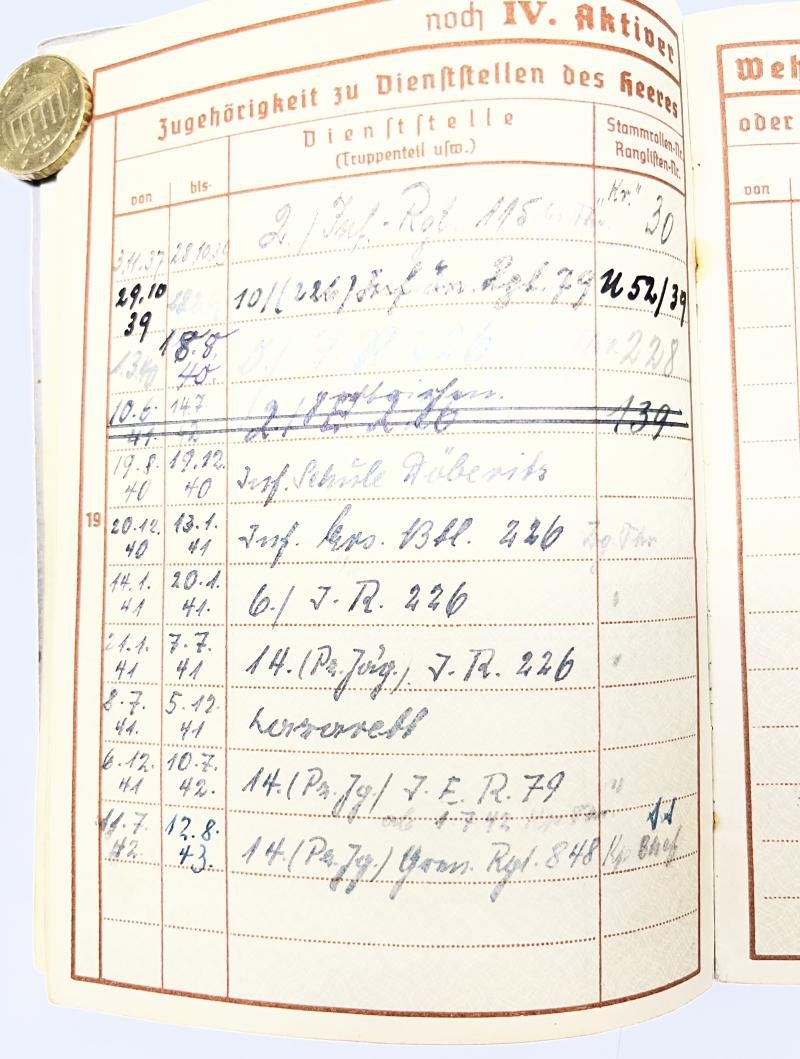 noch IV. Aktiver
Zugehörigkeit zu Dienststellen des Heeres
von bis Dienststelle (Truppenteil usw.) Stammrollen-Nr. Ranglisten-Nr.
3.11.37 28.10.39 2./Inf.-Rgt. 115 "Kr." 30
29.10 39 10/(226) Inf. Rgt. 79 U 52/39
18.8. 40. 228
10.6. 41 14.7 42 139
19.8. 40 19.12. 40 Inf. Schule Döberitz
19
20.12. 40 13.1. 41 Inf. Ers. Btl. 226 Zg Fhr
14.1. 41 20.1. 41. 6./ I.R. 226 "
21.1. 41 7.7. 41 14. (Pz. Jäg.) I.R. 226 "
8.7. 41. 5.12. 41 Lazarett
6.12. 41 10.7. 42. 14. (Pz. Jg.) I.E.R. 79 "
11.7. 42. 12.8. 43. 14. (Pz. Jg.) Gren. Rgt. 848 Kp Chef
Weh
oder
von